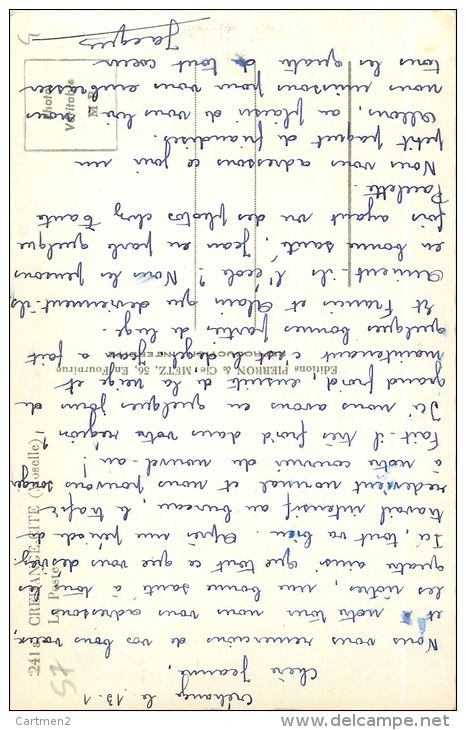 Créhange le 13-1
Chère Jeanne,
Nous vous remercions de vos bons vœux
et notre tour nous vous adressons
les nôtres, une bonne santé à tous les
quatre ainsi que tout ce que vous désirez.
Ici, tout va bien. Après une période de
travail intensif au bureau le trafic
redevient normal et nous pouvons songer
à notre courrier du nouvel-an !
Fait-il très froid dans votre région ?
Ici nous avons eu quelques jours de
grand froid, ensuite de la neige et
maintenant c'est le dégel. Jean a fait
quelques bonnes parties de luge.
Et Francis et Alain que deviennent-ils
Aiment-ils l'école ? Nous les pensons
en bonne santé, Jean en parle quelque
fois ayant vu des photos chez Tante
Paulette.
Nous vous adressons ce jour un
petit paquet de friandises.
Allons, au plaisir de vous lire
nous vous embrasser
tous les quatre de tout cœur
Jacques
241 a CREHANGE-CITE (Moselle)
La Poste
57
Editions PIERRON & Cie, METZ, 56, En Fournirue
REPRODUCTION INTERDITE
Photo
Véritable
M P
Cartmen2
www.delcampe.net